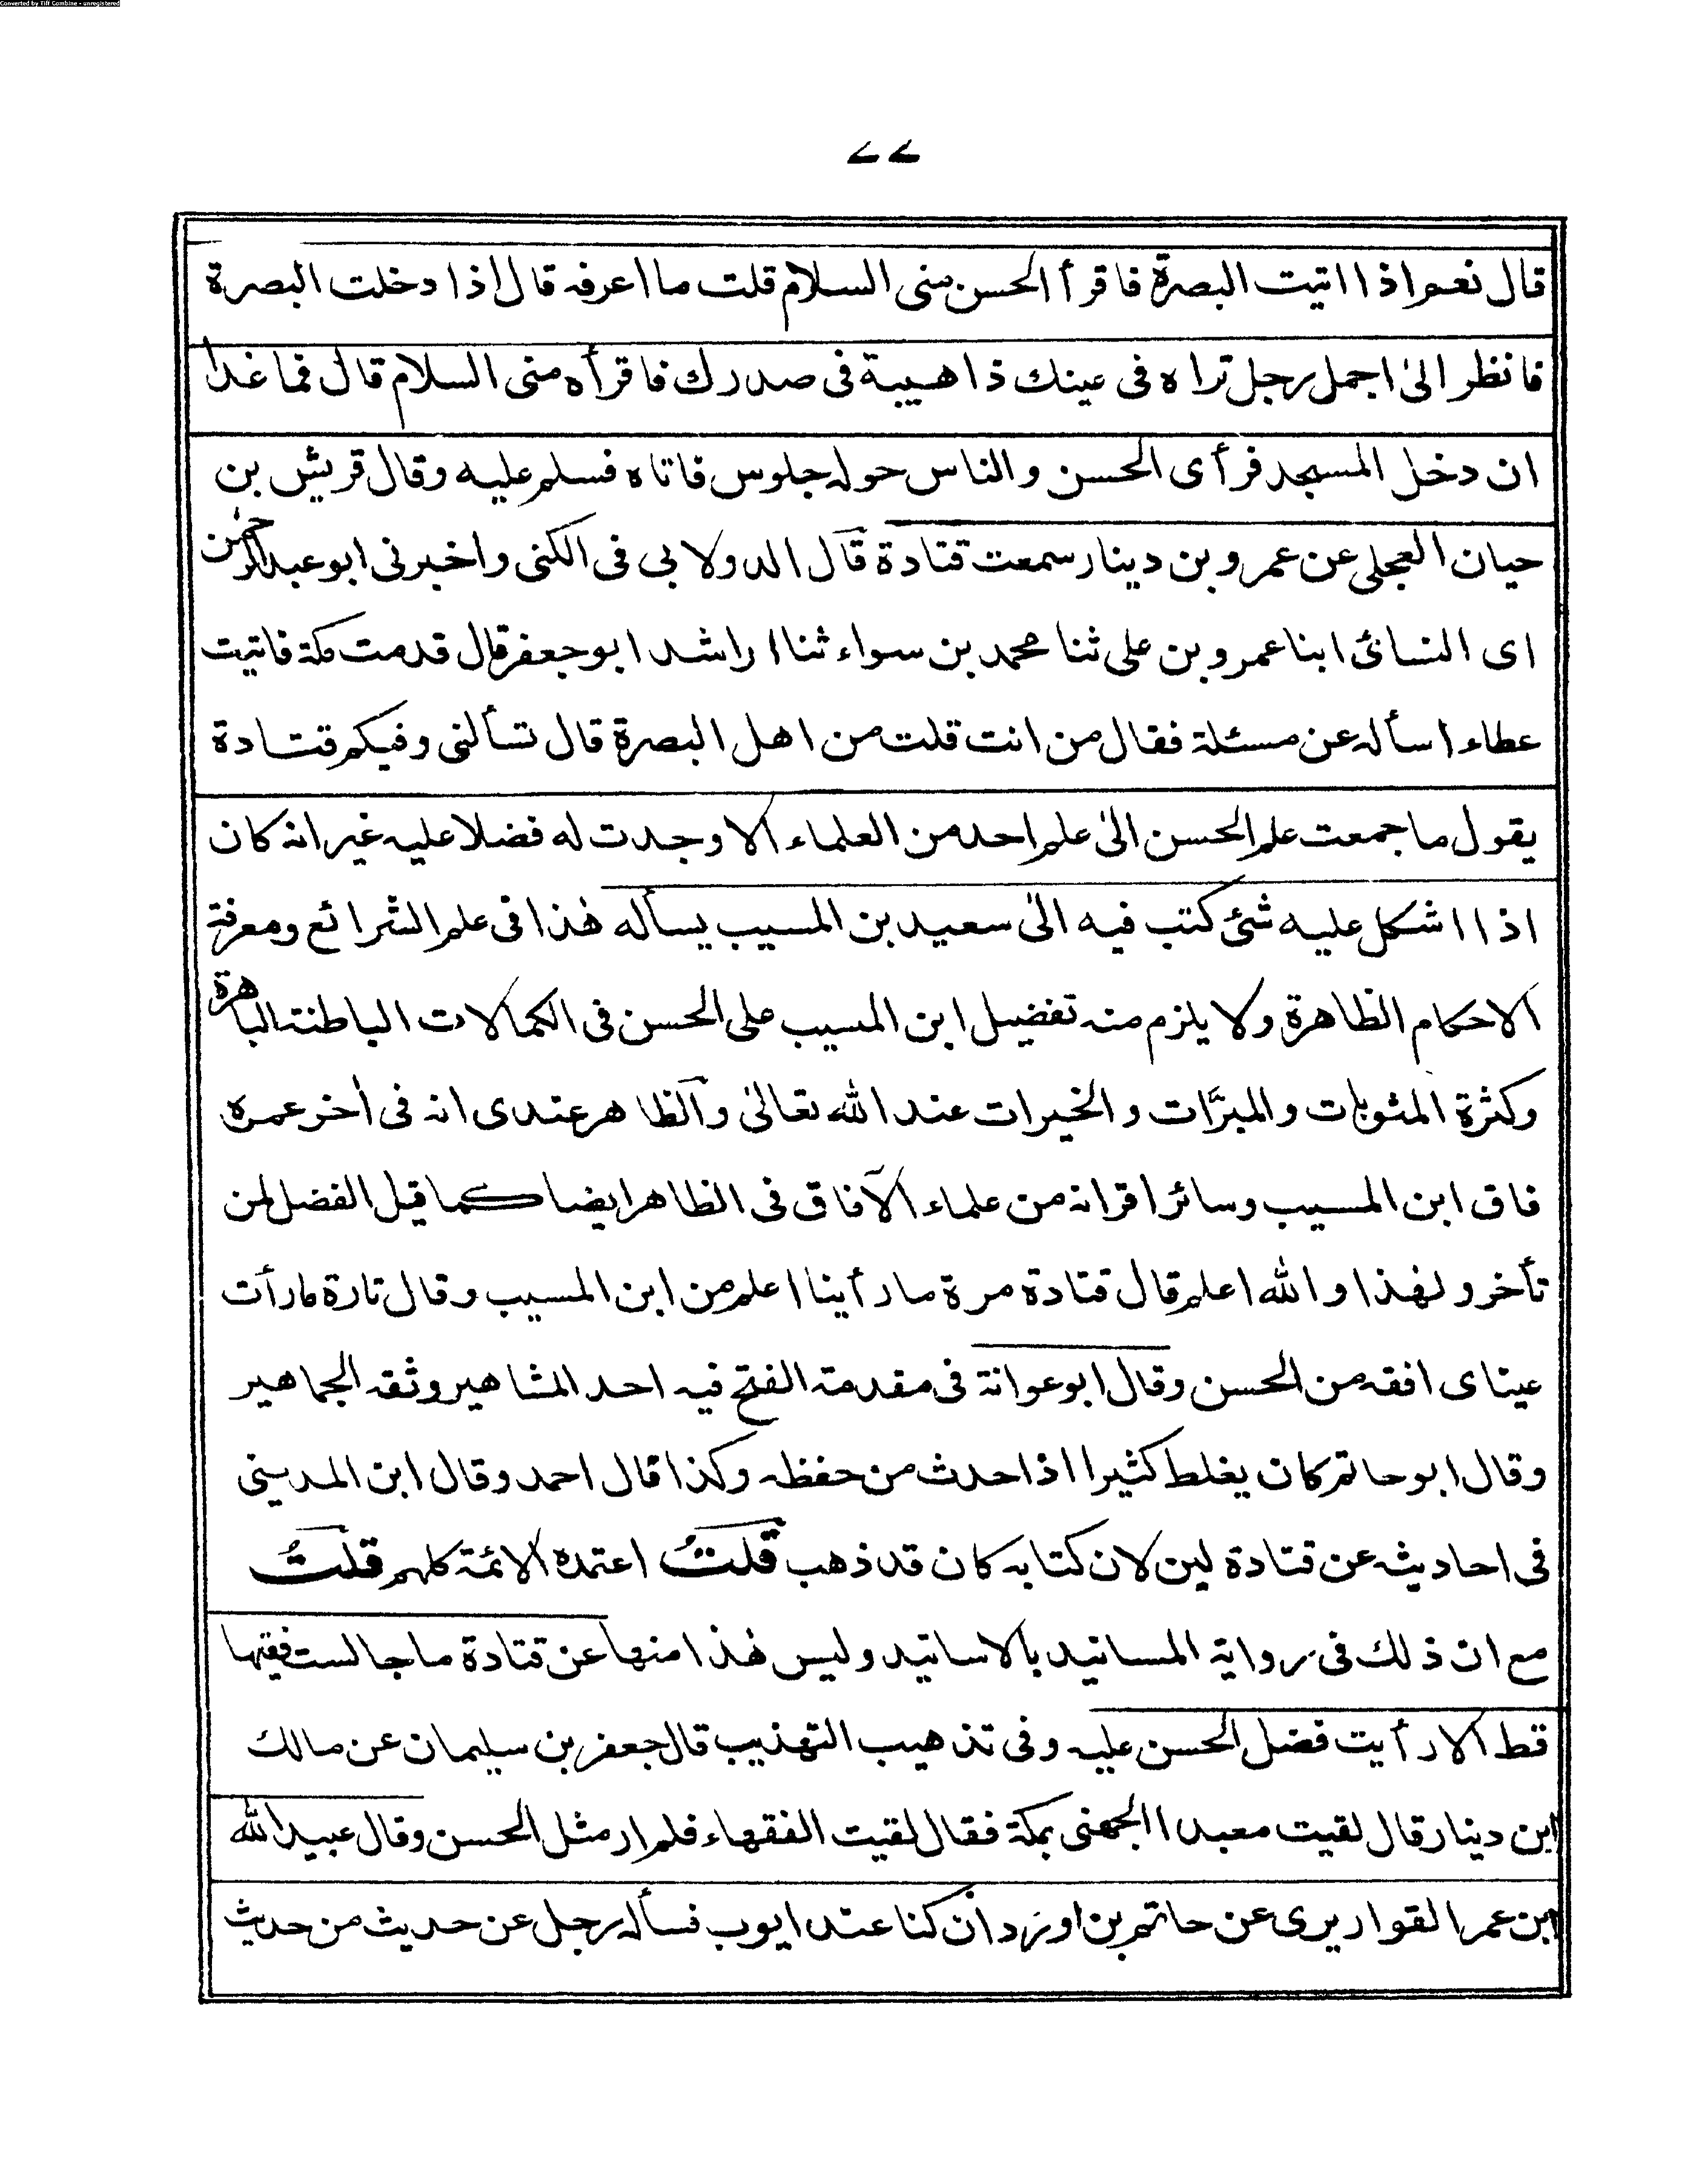 Converted by Tiff Combine - unregistered
۷۷
قال نعم اذا اتيت البصرة فاقرأ الحسن منى السلام قلت ما اعرفه قال اذا دخلت البصرة
فانظر الىٰ اجمل رجل تراه فى عينك ذا هيبة فى صدرك فاقرأه منى السلام قال فما غدا
ان دخل المسجد فرأى الحسن والناس حوله جلوس فاتاه فسلم عليه وقال قريش بن
حيان العجلى عن عمرو بن دينار سمعت قتادة قال الدولابي فى الكنى واخبرنى ابو عبد الرحمٰن
اى النسائى ابنا عمرو بن على ثنا محمد بن سواء ثنا راشد ابو جعفر قال قدمت مكة فاتيت
عطاء اسأله عن مسئلة فقال من انت قلت من اهل البصرة قال تسألنى وفيكم قتادة
يقول ما جمعت علم الحسن الىٰ علم احد من العلماء الا وجدت له فضلا عليه غير انه كان
اذا اشكل عليه شئ كتب فيه الىٰ سعيد بن المسيب يسأله هٰذا فى علم الشرائع ومعرفة
الاحكام الظاهرة ولا يلزم منه تفضيل ابن المسيب على الحسن فى الكمالات الباطنة الباهرة
وكثرة المثوبات والمبرَّات والخيرات عند الله تعالىٰ والظاهر عندى انه فى أخر عمره
فاق ابن المسيب وسائر اقرانه من علماء الآفاق فى الظاهر ايضا كما قيل الفضل لمن
تأخر ولهٰذا والله اعلم قال قتادة مرة ما رأينا اعلم من ابن المسيب وقال تارة ما رأت
عيناى افقه من الحسن وقال ابو عوانة فى مقدمة الفتح فيه احد المشاهير وثقه الجماهير
وقال ابو حاتم كان يغلط كثيرا اذا حدث من حفظه وكذا قال احمد وقال ابن المدينى
فى احاديثه عن قتادة لين لان كتابه كان قد ذهب قلتُ اعتمده الائمة كلهم قلتُ
مع ان ذلك فى رواية المسانيد بالاسانيد وليس هٰذا منها عن قتادة ما جالست فقيها
قط الا رأيت فضل الحسن عليه وفى تذهيب التهذيب قال جعفر بن سليمان عن مالك
ابن دينار قال لقيت معبدا الجهنى بمكة فقال لقيت الفقهاء فلم ار مثل الحسن وقال عبيد الله
ابن عمر القواريرى عن حاتم بن وردان كنا عند ايوب فسأله رجل عن حديث من حديث